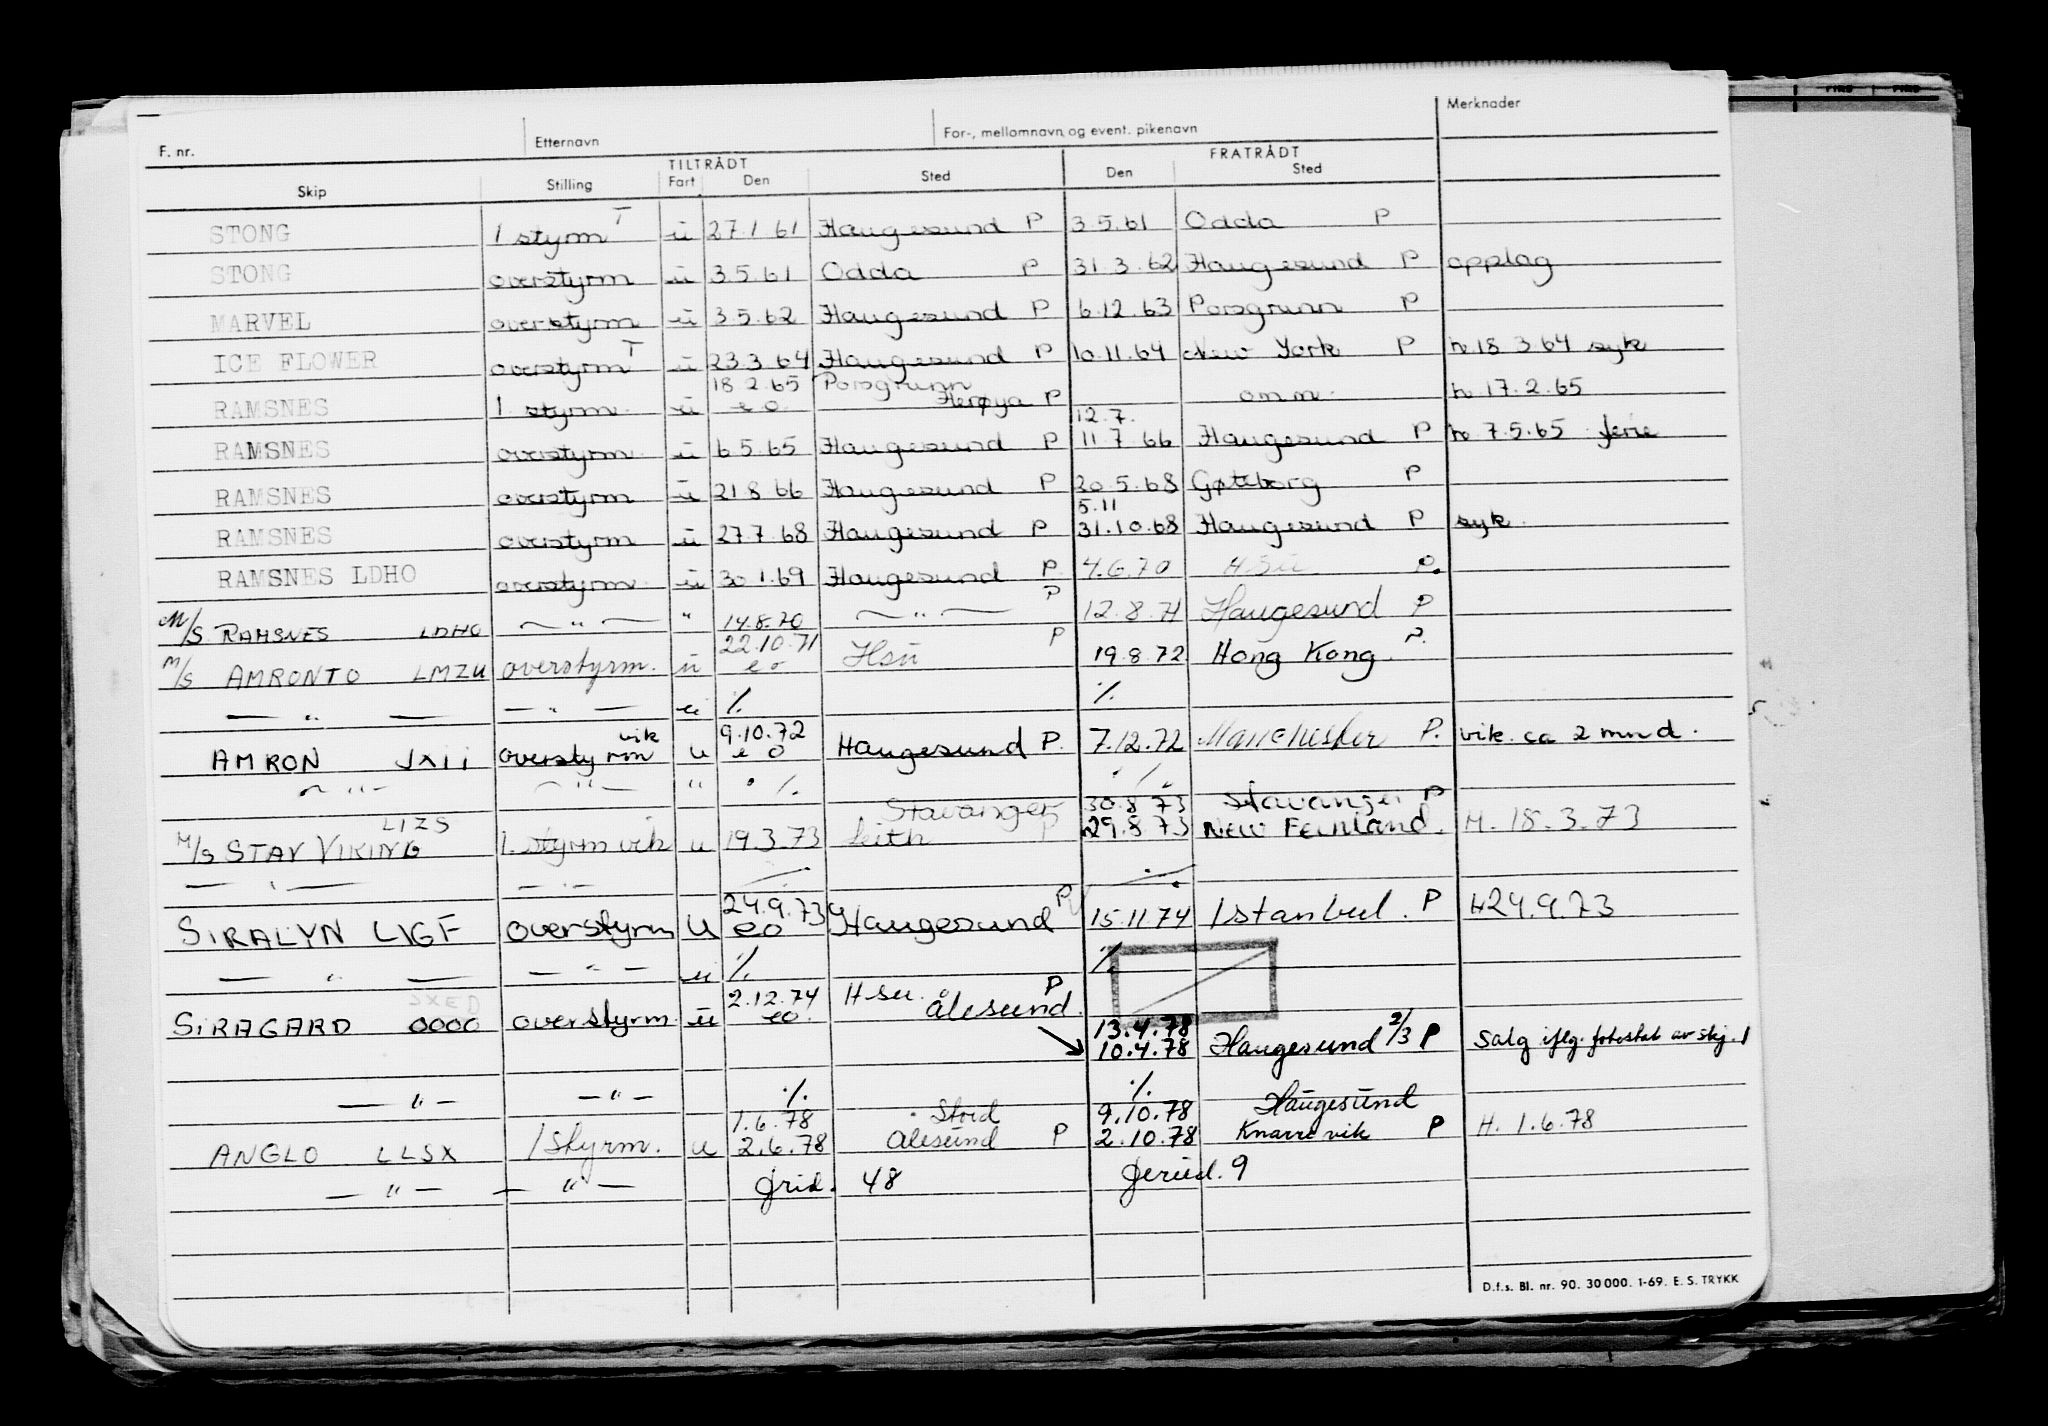 F. nr. Etternavn For-, mellomnavn og event. pikenavn Merknader
TILTRÅDT FRATRÅDT
Skip Stilling Fart Den Sted Den Sted
STONG 1 styrm T u 27.1 61 Haugesund P 3.5.61 Odda P
STONG overstyrm u 3.5.61 Odda P 31 3.62 Haugesund P opplag
MARVEL overstyrm u 3.5.62 Haugesund P 6.12.63 Porsgrunn P
ICE FLOWER overstyrm T u 23.3 64 Haugesund P 10.11.64 New York P h 18 3.64 syk
18 2.65 Porsgrunn
RAMSNES 1 styrm u e o Herøya P omm. h 17.2.65
12.7.
RAMSNES overstyrm u 6 5.65 Haugesund P 11 7 66 Haugesund P h 7.5.65 ferie
RAMSNES overstyrm u 21 8 66 Haugesund P 20.5.68 Gøteborg P
5.11
RAMSNES overstyrm u 27.7.68 Haugesund P 31.10.68 Haugesund P syk.
RAMSNES LDHO overstyrm u 30 1.69 Haugesund P 4.6.70 H Su P.
M/S RAMSNES LDHO — " — " 14.8.70 — " — P 12.8.71 Haugesund P
22.10.71
M/S AMRONTO LMZU overstyrm. u e o Hsu P 19.8.72 Hong Kong P.
— " — — " — u ./. ./.
vik 9.10.72
AMRON JXII overstyrm u e o Haugesund P. 7.12.72 Manchester P. vik. ca 2 mnd.
— " — — " — " ./. ./.
LIZS Stavanger 30.8 73 Stavanger P
M/S STAV VIKING 1. styrm vik u 19.3.73 Leith P 29.8 73 H. 18.3.73
— " — — " — ./. ./.
24.9.73
SIRALYN LIGF overstyrm u eo Haugesund P 15.11.74 Istanbul. P H 24.9.73
— " — — " — u ./. ./.
JXED 2.12.74 H su. P
SIRAGARD 0000 overstyrm. u eo. Ålesund.
13.4.78
10.4.78 Haugesund 2/3 P Salg iflg. fotostat av skj. 1
— " — — " — ./. ./.
1.6.78 Stord 9.10.78 Haugesund
ANGLO LLSX 1 styrm. u 2.6.78 Ålesund P 2.10.78 Knarrevik P H. 1.6.78
— " — — " — frid. 48 feried. 9
D.f.s. Bl. nr. 90. 30 000. 1-69. E. S. TRYKK